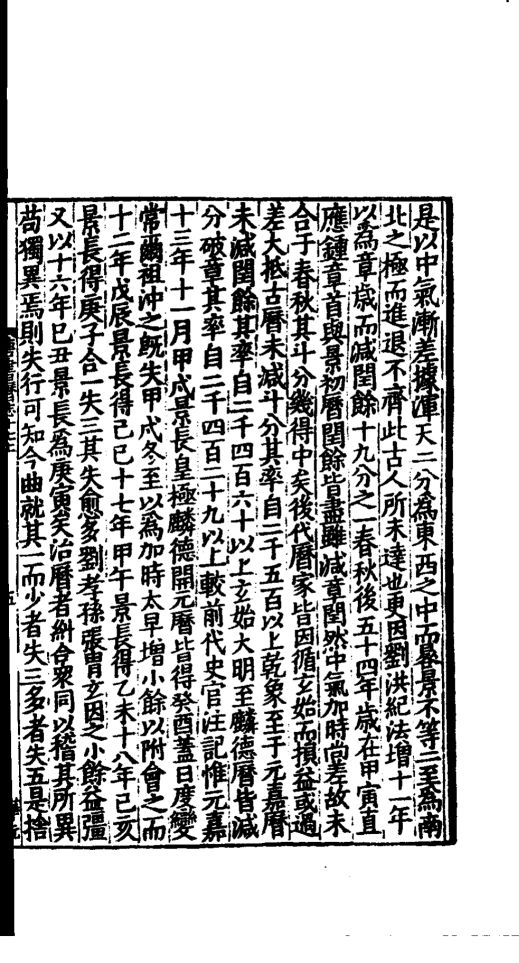 是以中氣漸差據渾天二分爲東西之中而晷景不等二至爲南
北之極而進退不齊此古人所未達也更因劉洪紀法增十一年
以爲章歲而減閏餘十九分之一春秋後五十四年歲在甲寅直
應鍾章首與景初曆閏餘皆盡雖減章閏然中氣加時尚差故未
合于春秋其斗分幾得中矣後代曆家皆因循玄始而損益或過
差大抵古曆未減斗分其率自二千五百以上乾象至于元嘉曆
未減閏餘其率自二千四百六十以上玄始大明至麟德曆皆減
分破章其率自二千四百二十九以上較前代史官注記惟元嘉
十三年十一月甲戌景長皇極麟德開元曆皆得癸酉蓋日度變
常爾祖沖之既失甲戌冬至以爲加時太早增小餘以附會之而
十二年戊辰景長得己巳十七年甲午景長得乙未十八年己亥
景長得庚子合一失三其失愈多劉孝孫張胄玄因之小餘益彊
又以十六年己丑景長爲庚寅矣治曆者糾合衆同以稽其所異
苟獨異焉則失行可知今曲就其一而少者失三多者失五是捨
五